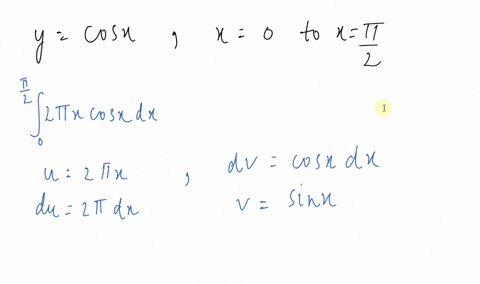 y = cosx , x = 0 to x = π/2
∫₀^(π/2) 2πx cosx dx
u = 2πx , dv = cosx dx
du = 2π dx v = sinx